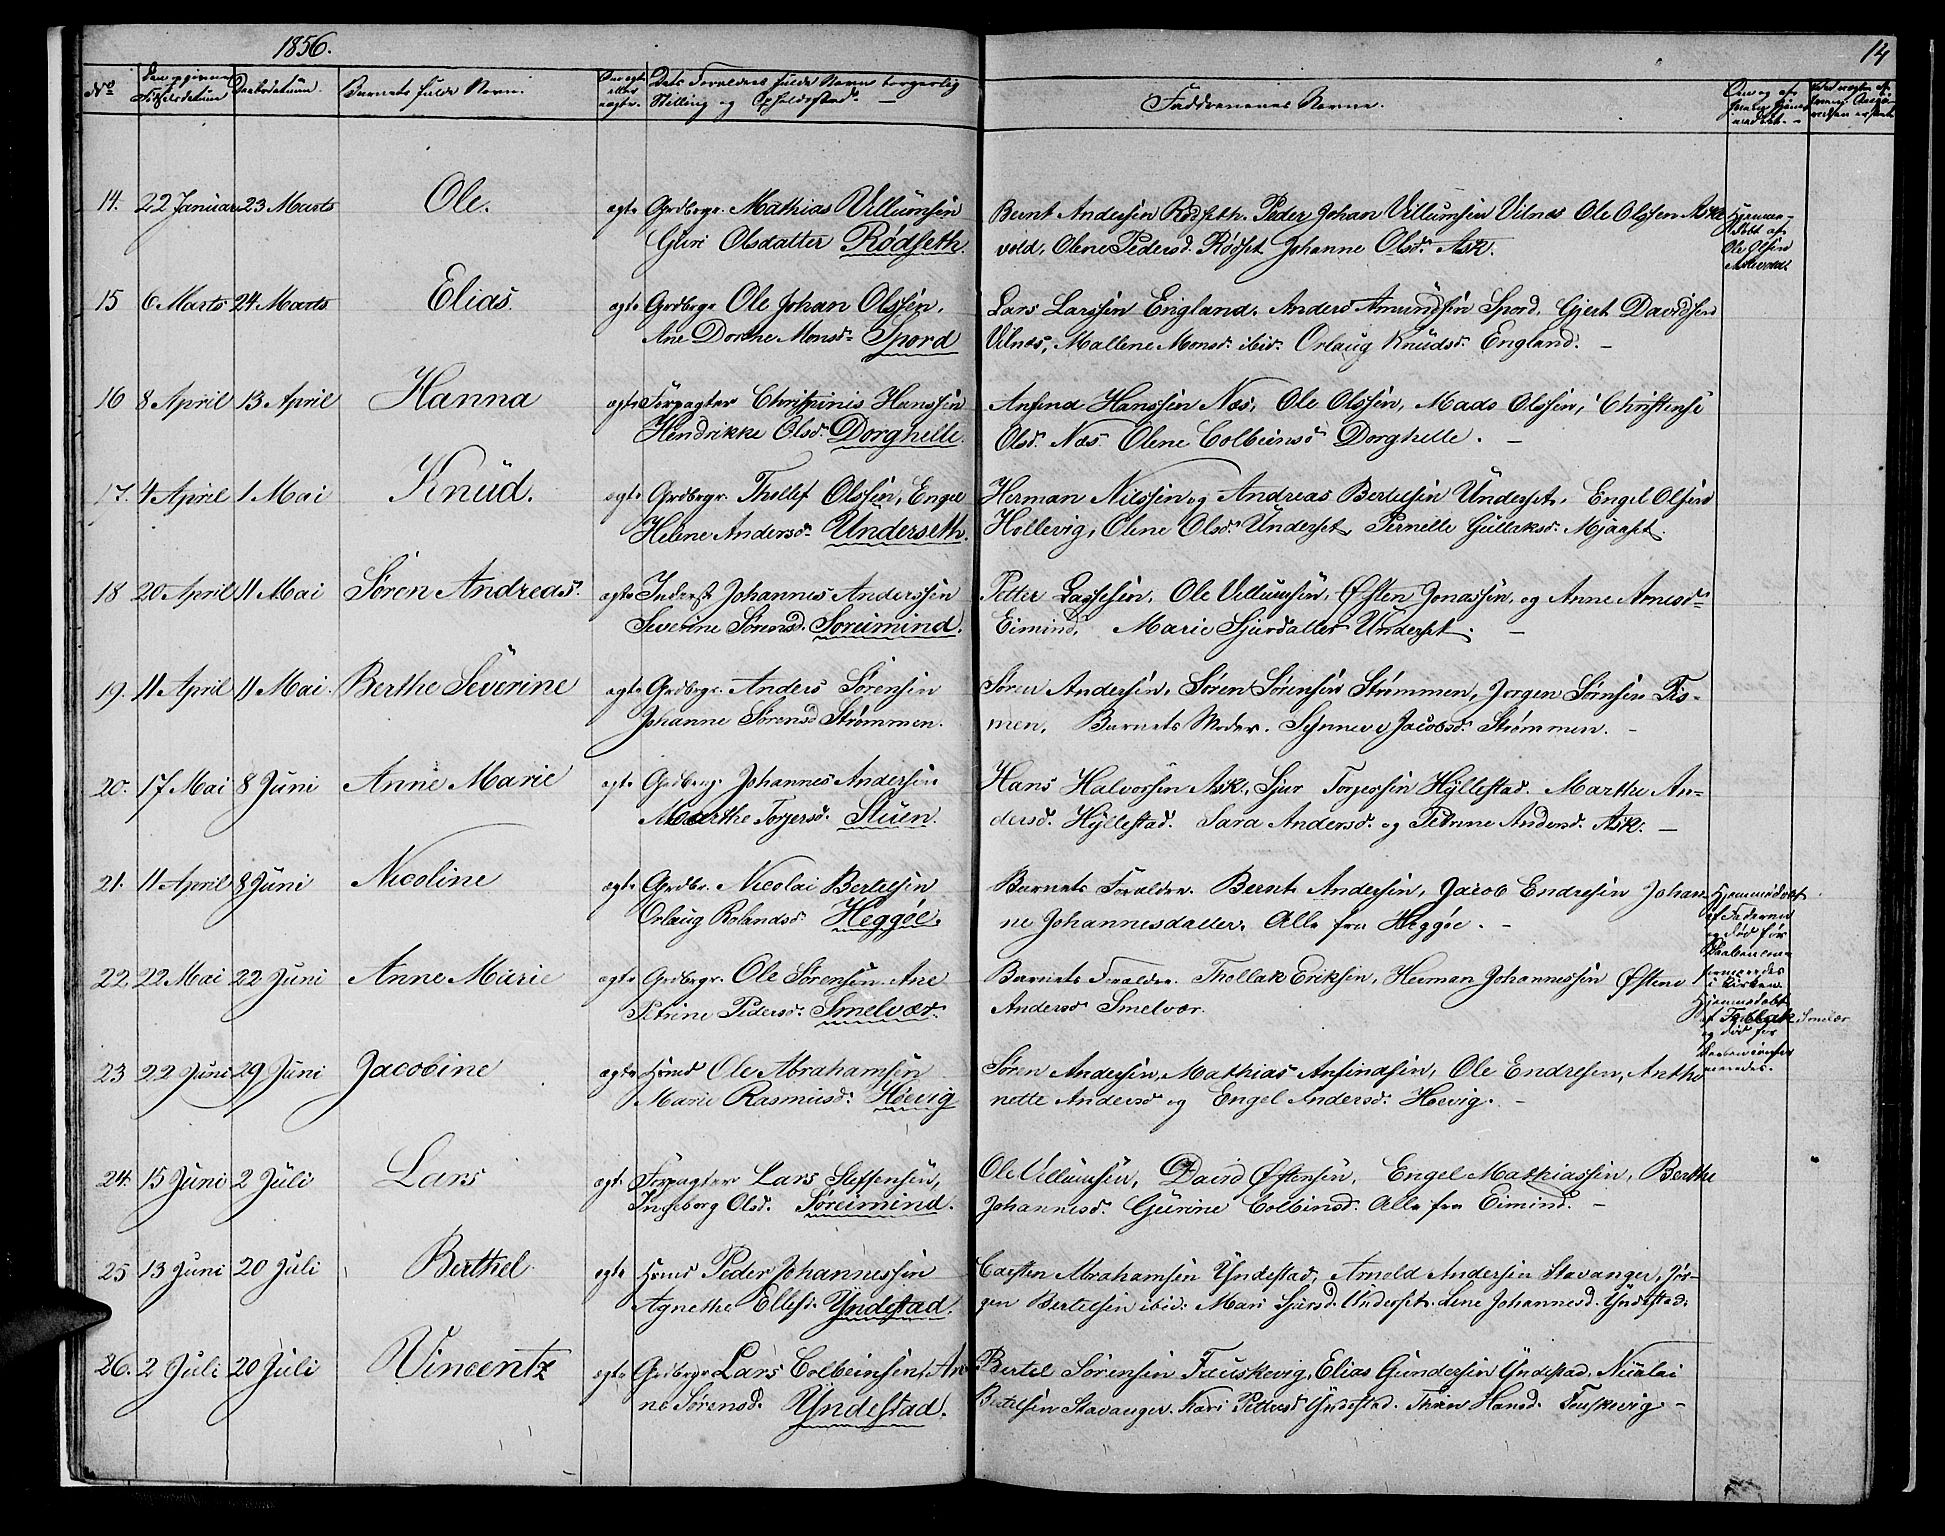 1856.
14
No
Daabsdatum.
Barnets fulde Navn.
Dets Forældres fulde Navn borgerlig
Stilling og Opholdssted. —
Faddrenenes Navne.
14. 22 Januar 23 Marts Ole. ægte Grdbrgr. Mathias Villumsen
Guri Olsdatter Rödseth.
Bernt Andersen Rødseth. Peder Johan Villumsen Vilnæs Ole Olssen Aske
vold, Olene Pedersd. Rødset Johanne Olsd. Ask.
Hjemme-
døbt af
Ole Olsen
Askevold.
15 6 Marts 24 Marts Elias. ægte Grdbrgr Ole Johan Olssen,
Ane Dorthe Monsd. Spord
Lars Larssen England. Anders Amundsen Spord. Gjert Davidsen
Vilnæs, Mallene Monsd. ibid. Orlaug Knudsd. England. —
16 8 April 13 April Hanna ægte Forpagter Hanssen
Hendrikke Olsd. Dorghelle.
Anfind Hanssen Næs, Ole Olssen, Mads Olssen, Christense
Olsd. Næs. Olene Colbeinsd Dorghelle. —
17. 4 April 1 Mai Knud. ægte Grdbrgr. Thollef Olssen, Engel
Helene Andersd. Underseth.
Herman Nilssen og Andreas Bertelsen Underset, Engel Olsen
Hollevig, Olene Olsd. Underset, Pernelle Gullaksd. Mjaaset.
18 20 April 11 Mai Søren Andreas. ægte Inderst Johannes Anderssen
Severine Sørensd. Soreimind.
Petter Lassesen, Ole Villumsen, Østen Jonassen, og Anne Arnesd.
Eimind, Marie Sjurdatter Underset. —
19. 11 April 11 Mai. Berthe Severine ægte Grdbrgr. Anders Sørensen
Johanne Sørensd Strømmen.
Søren Andersen, Søren Sørensen Strømmen, Jørgen Sørnsen Tis-
men, Barnets Moder. Synneve Jacobsd. Strømmen. —
20. 17 Mai 8 Juni Anne Marie ægte Grdbrgr Johannes Andersen
Marthe Torgersd. Stuen.
Hans Halvorsen Ask, Sjur Torgersen Hyllestad. Marthe An-
dersd. Hyllestad. Sara Andersd. og Petrine Andersd. Ask. —
21. 11 April 8 Juni Nicoline ægte Grdbr. Nicolai Bertelsen
Orlaug Rolandsd. Heggøe.
Barnets Forældre. Bernt Andersen, Jacob Endresen Johan
ne Johannesdatter. Alle fra Heggøe. —
Hjemmedøbt
af Faderen
og død før
Daaben con-
firmeredes
i Kirken
22. 22 Mai 22 Juni Anne Marie ægte Grdbrgr. Ole Sørensen. Ane
Petrine Pedersd. Smelvær.
Barnets Forældre. Thollak Eriksen, Herman Johannessen Østen
Andersd Smelvær.
Hjemmedøbt
af Tollak Smelvær
og død før
Daaben confir
meredes.
23 22 Juni 29 Juni Jacobine ægte Hmd Ole Abrahamsen
Marie Rasmusd. Høevig
Søren Andersen, Mathias Anfindsen, Ole Endresen, Antho
nette Andersd og Engel Andersd. Høevig. —
24. 15 Juni 2 Juli Lars ægte Forpagter Lars Steffensen,
Ingeborg Olsd. Søreimind.
Ole Villumsen, David Østensen, Engel Mathiassen, Berthe
Johannesd. Gurine Colbinsd. Alle fra Eimind. —
25 13 Juni 20 Juli Berthel ægte Hmd Peder Johannessen
Agnethe Ellefsd. Yndestad.
Carsten Abrahamsen Yndestad, Arnold Andersen Stavanger, Jør-
gen Bertelsen ibid. Mari Sjursd. Underset. Lene Johannesd. Yndestad.
26. 2 Juli 20 Juli Vincentz ægte Grdbrgr Lars Colbeinsen, An
ne Sørensd. Yndestad.
Bertel Sørensen Fauskevig, Elias Gundersen Yndestad. Nicolai
Bertelsen Stavanger. Kari Pedersd Yndestad. Hansd. Fauskevig —